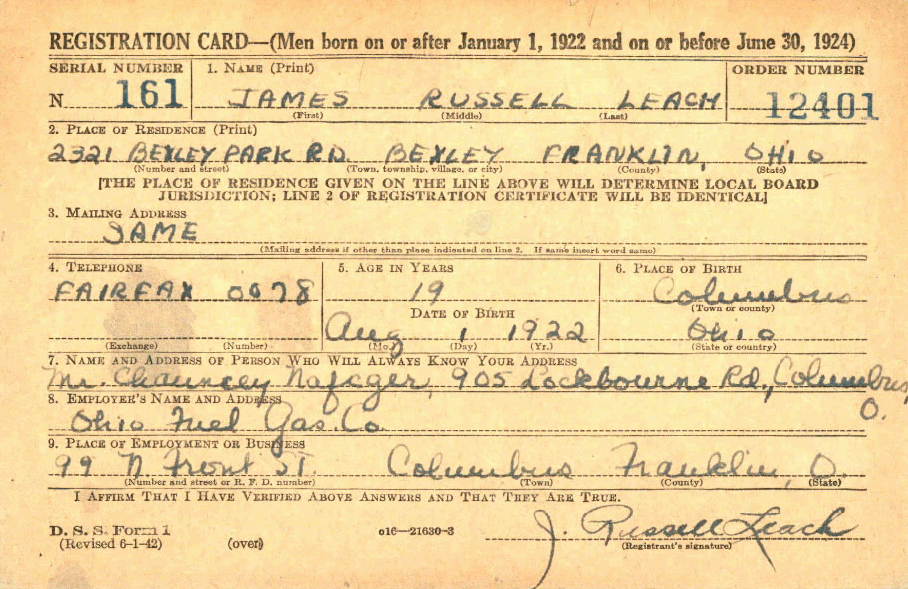 REGISTRATION CARD—(Men born on or after January 1, 1922 and on or before June 30, 1924)
SERIAL NUMBER 1. NAME (Print) ORDER NUMBER
N 161 JAMES RUSSELL LEACH 12401
(First) (Middle) (Last)
2. PLACE OF RESIDENCE (Print)
2321 BEXLEY PARK RD. BEXLEY FRANKLIN, OHIO
(Number and street) (Town, township, village, or city) (County) (State)
[THE PLACE OF RESIDENCE GIVEN ON THE LINE ABOVE WILL DETERMINE LOCAL BOARD
JURISDICTION; LINE 2 OF REGISTRATION CERTIFICATE WILL BE IDENTICAL]
3. MAILING ADDRESS
SAME
(Mailing address if other than place indicated on line 2. If same insert word same)
4. TELEPHONE 5. AGE IN YEARS 6. PLACE OF BIRTH
FAIRFAX 0078 19 Columbus
(Town or county)
DATE OF BIRTH
Aug 1 1922 Ohio
(Exchange) (Number) (Mo.) (Day) (Yr.) (State or country)
7. NAME AND ADDRESS OF PERSON WHO WILL ALWAYS KNOW YOUR ADDRESS
Mr. Chauncey Nafzger, 905 Lockbourne Rd., Columbus,
O.
8. EMPLOYER'S NAME AND ADDRESS
Ohio Fuel Gas. Co.
9. PLACE OF EMPLOYMENT OR BUSINESS
99 N Front ST. Columbus Franklin, O.
(Number and street or R. F. D. number) (Town) (County) (State)
I AFFIRM THAT I HAVE VERIFIED ABOVE ANSWERS AND THAT THEY ARE TRUE.
D. S. S. Form 1 o16—21630-3 J. Russell Leach
(Revised 6-1-42) (over) (Registrant's signature)